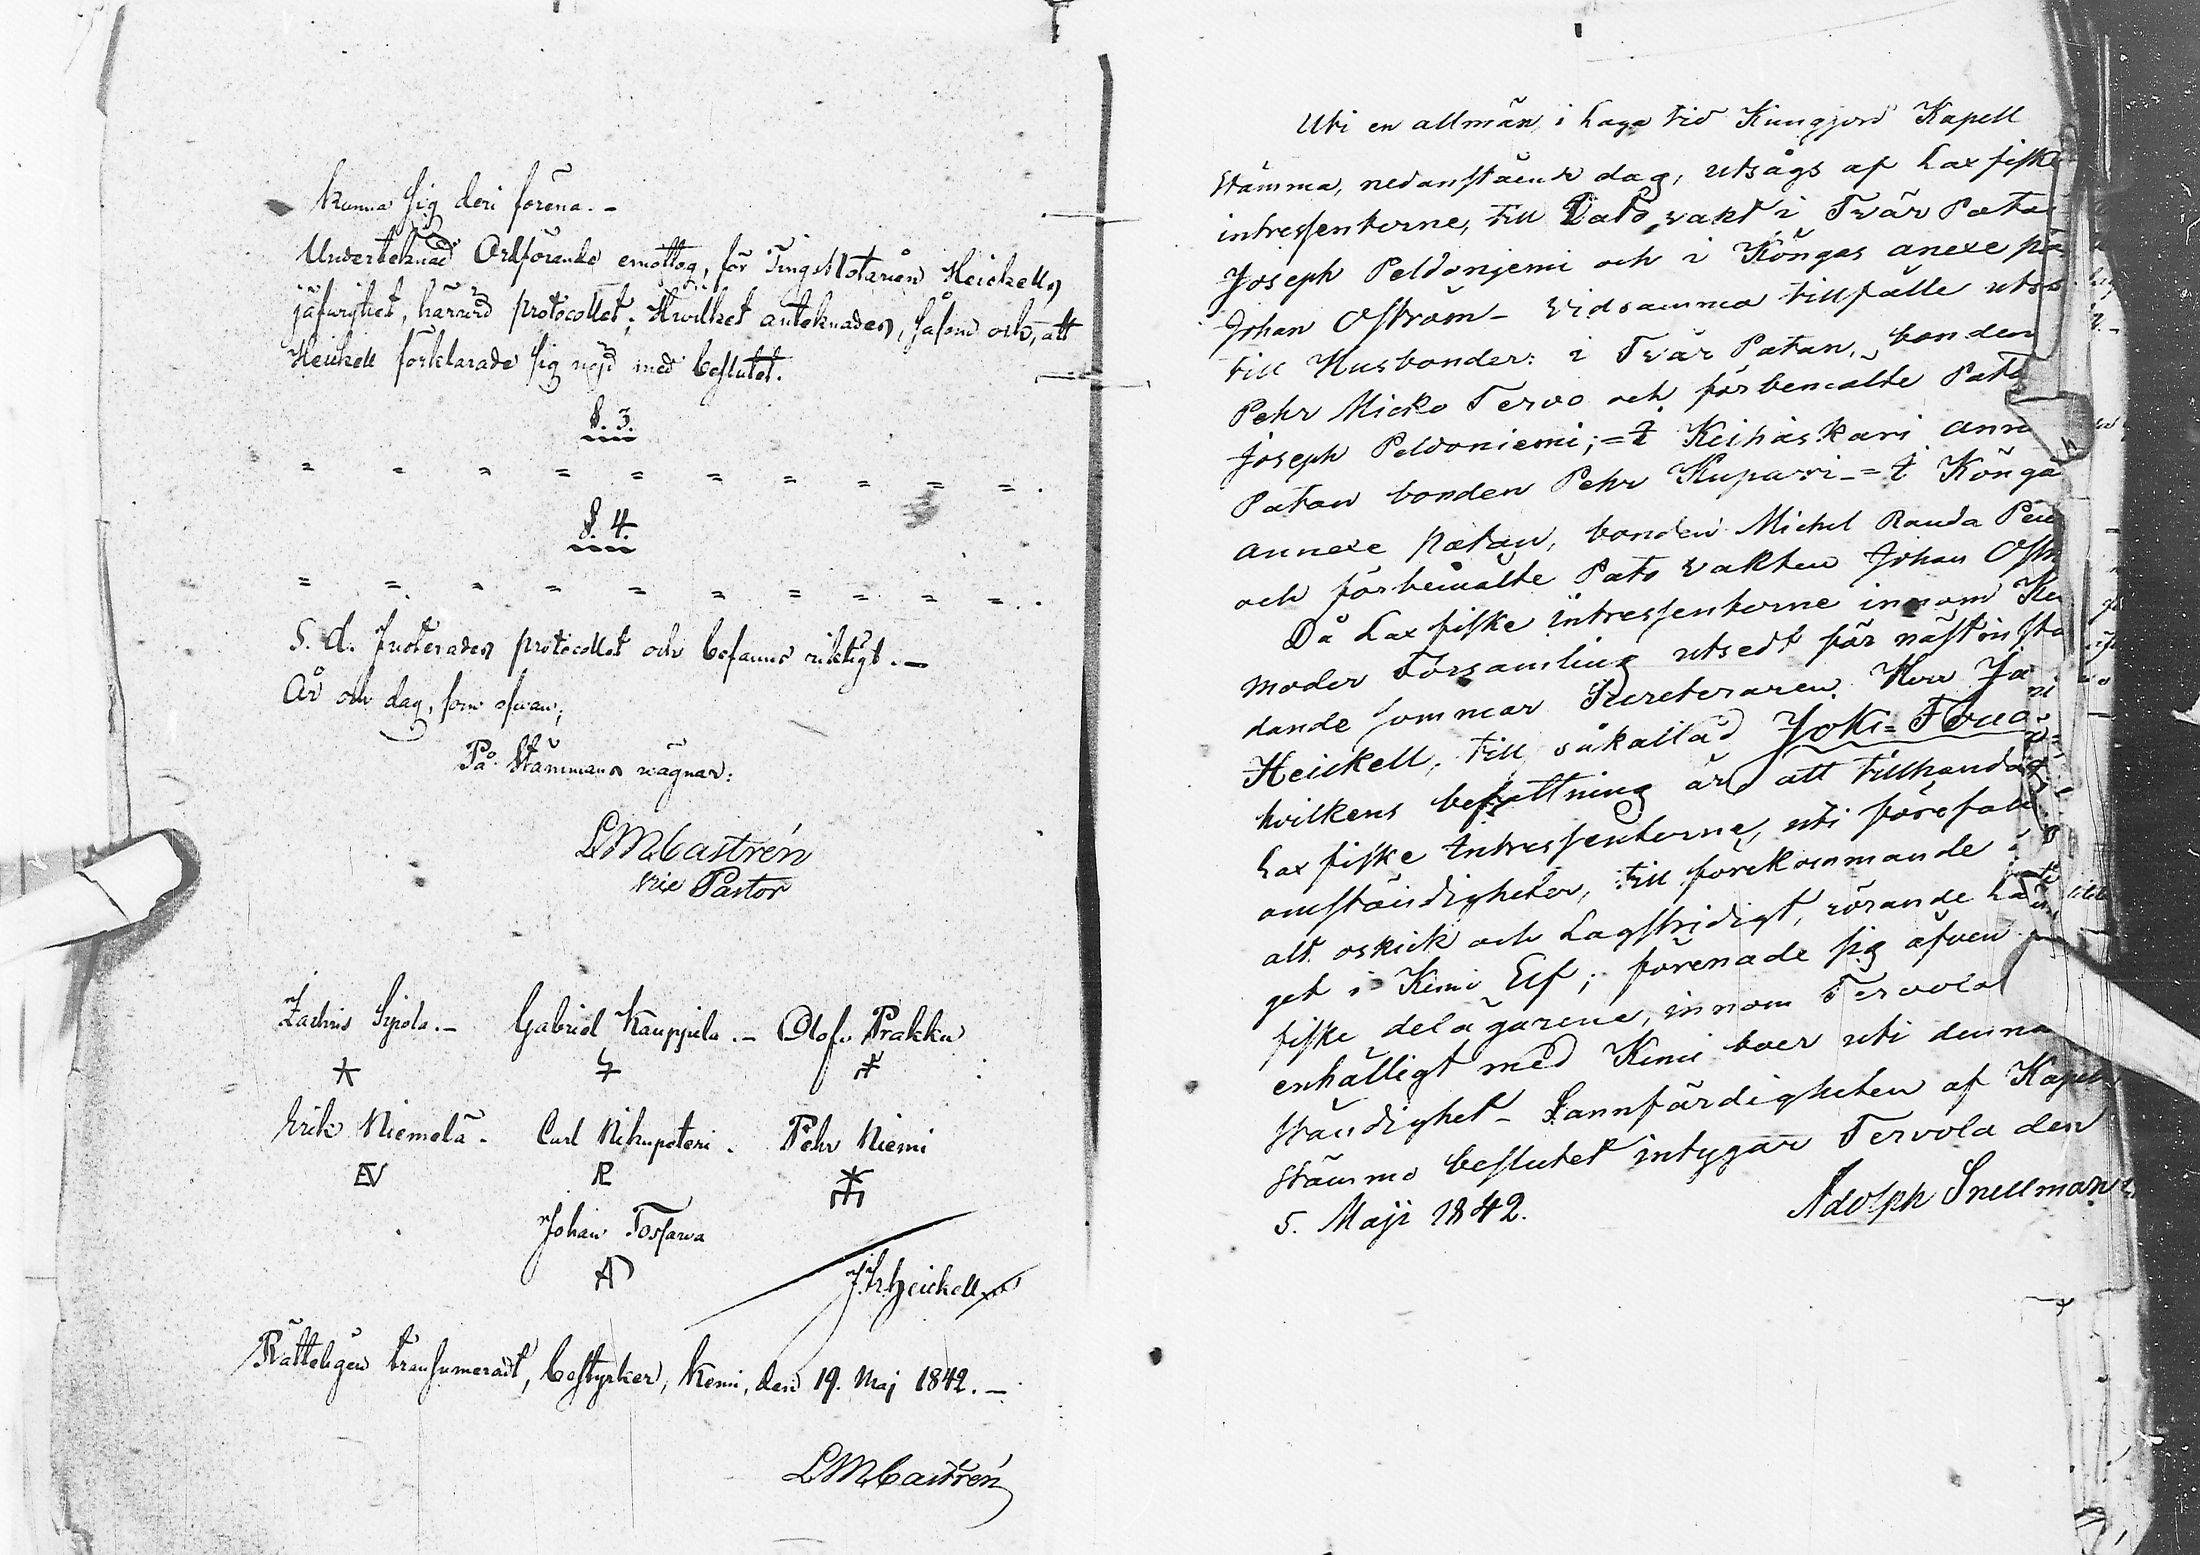 kunna sig deri förena. –
Undertecknad Ordförande emottog, för TingsNotarien Heickells
jäfvighet, härvid protocollet; Hvilket antecknades, såsom ock, att
Heickell förklarade sig nöjd med beslutet.
§. 3.
= = = = = = = = = = .
§. 4.
= = = = = = = = = = .
S. d. justerades protocollet och befanns riktigt. –
År och dag, som ofvan;
På Stämmans vägnar:
LMCastrén
vice Pastor
Zachris Sipola. – Gabriel Kauppila. – Olof Prakku
Erik Niemelä. Carl Nikupeteri. Pehr Niemi
Johan Tossawa
J.H.Heickell
Rätteligen transumeradt, bestyrker, Kemi, den 19. Maj 1842. –
LMCastrén
Uti en allmän i Laga tid Kungjord Kapell
stämma, nedanstående dag, utsågs af Laxfiske
intressenterne, till Pato vakt i Tvär Patan
Joseph Peldonjemi och i Köngas anexe pa
Johan Oström – vid samma tillfälle utså
till Husbonder: i Tvär Patan, bonden
Pehr Micko Tervo och förbemälte Pato
Joseph Peldoniemi; = i Keihäskari anne
Patan bonden Pehr Kuparri – = i Könga
annexe patan, bonden Michel Rauda Pe
och förbemälte Pato vakten Johan Ostr
Då Laxfiske intressenterne innom Ke
moder Församling utsedt för nästinsta
dande sommar Secreteraren Herr Ja
Heickell, till såkallad Joki=Foud
hvilkens befattning är att tillhanda
Laxfiske Intressenterne, uti förefall
omständigheter, till förekommande
alt oskick och Lagstridigt, rörande La
get i Kemi Elf; förenade sig äfven
fiske delägarene, innom Tervola
enhälligt med Kemi boer uti denna
ständighet – Sannfärdigheten af Kapell
stämmo beslutet intygar Tervola den
5. Maji 1842. Adolph Snellman